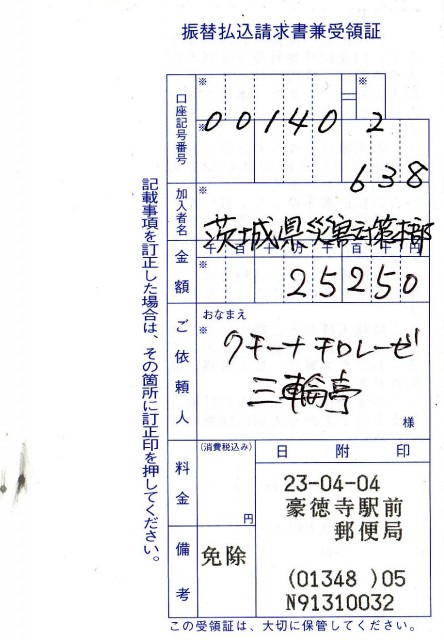 振替払込請求書兼受領証
口座記号番号
※
※
00140 2
※
638
加入者名
※
茨城県災害対策本部
金額
千 百 十 万 千 百 十 円
※
25250
ご依頼人
おなまえ
※
クチーナ チロレーゼ
三輪亭
様
料金
(消費税込み)
円
日 附 印
23-04-04
豪徳寺駅前
郵便局
(01348 )05
N91310032
備考
免除
記載事項を訂正した場合は、その箇所に訂正印を押してください。
この受領証は、大切に保管してください。